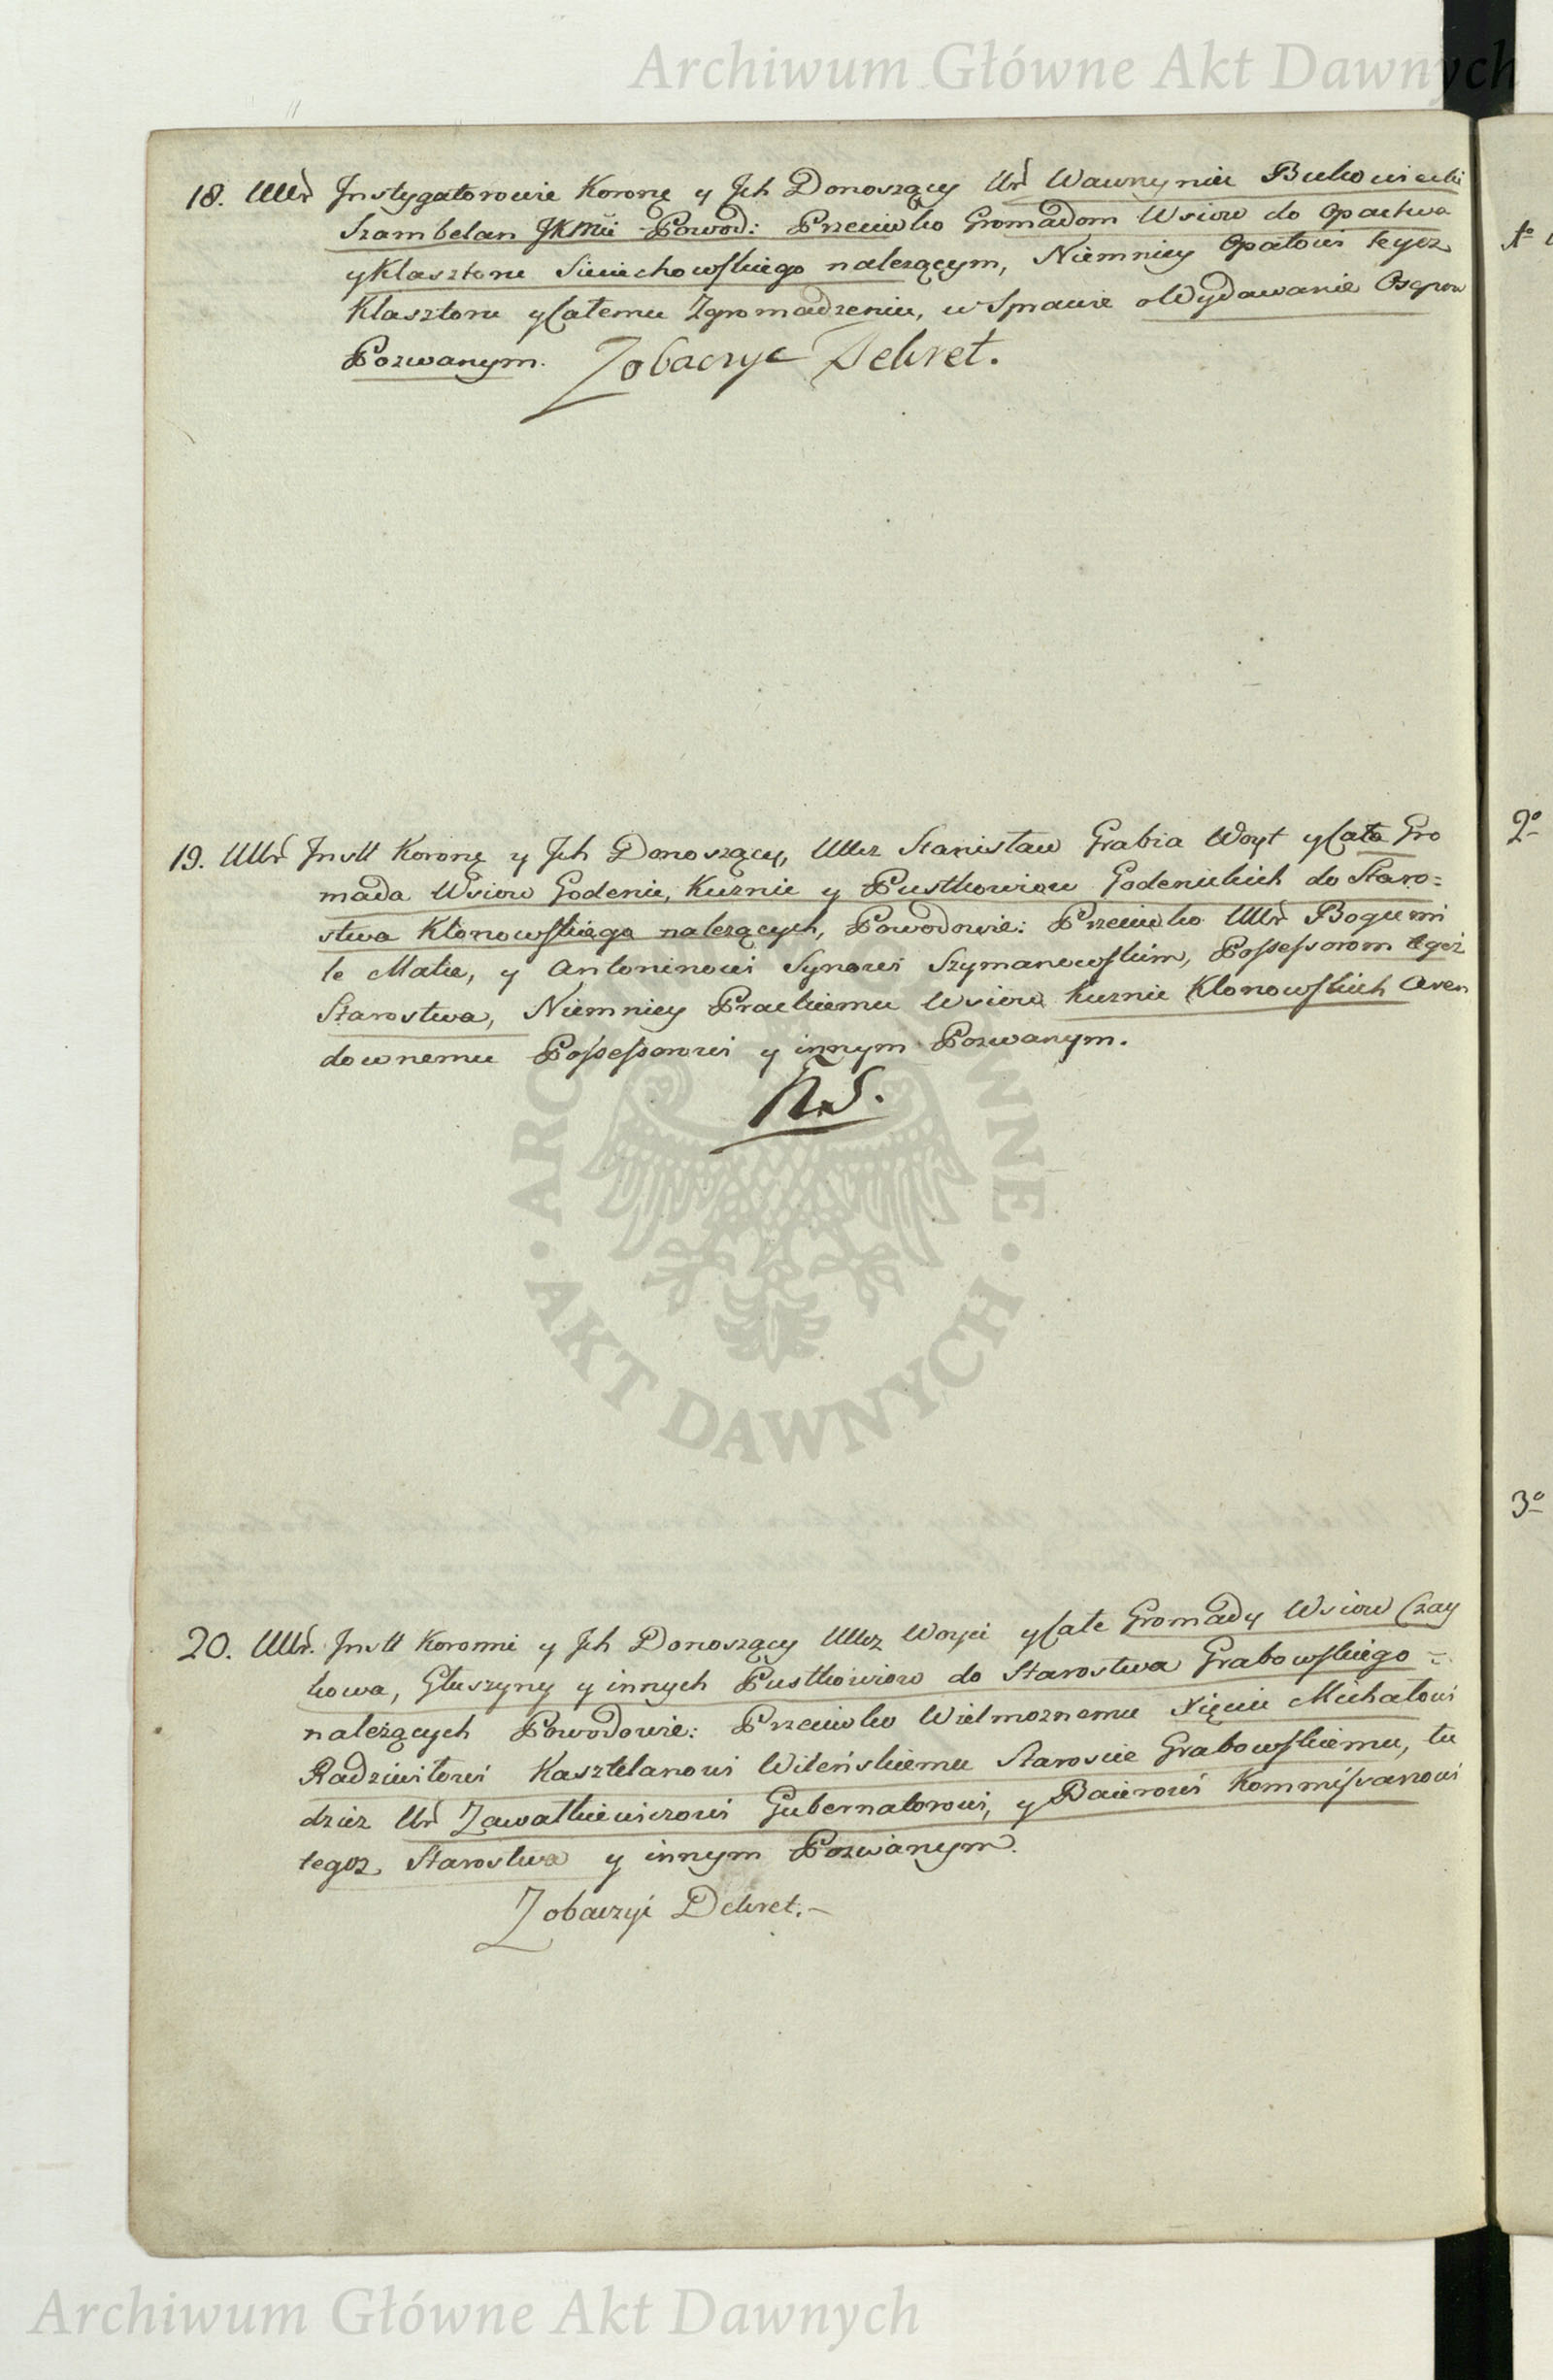 Archiwum Główne Akt Dawnych
18. UUr Jnstygatorowie Koronę y Jch Donoszący Ur Wawrzyniec Bukowiecki
Szambelan JKMci Powod: Przeciwko Gromadom Wsiow do Opactwa
y Klasztoru Sieciechowskiego należącym, Niemniey Opatowi tegoz
Klasztoru y Całemu Zgromadzeniu, w Sprawie o Wydawanie Osepow
Pozwanym. Zobaczyc Dekret.
19. UUr Jnstt Koronę y Jch Donoszący, UUcz Stanisław Grabia Woyt y Cała Gro
mada Wsiow Godenic, Kuznic y Pustkowiow Godenickich do Staro=
stwa Klonowskiego nalezących, Powodowie: Przeciwko UUr Bogumi
le Matce, y Antoninowi Synowi Szymanowskim, Possessorom tegoż
Starostwa, Niemniey Prackiemu Wsiow Kuznic Klonowskich Aren
downemu Possessorowi y innym Pozwanym.
N.S.
20. UUr. Jnstt Koronni y Jch Donoszący UUcz Woyci y Całe Gromady Wsiow Czay
kowa, Głuszyny y innych Pustkowiow do Starostwa Grabowskiego =
należących Powodowie: Przeciwko Wielmoznemu Xięciu Michałowi
Radziwiłowi Kasztelanowi Wileńskiemu Staroscie Grabowskiemu, tu
dziez Ur Zawatkiewiczowi Gubernatorowi, y Baierowi Kommissarzowi
tegoz Starostwa y innym Pozwanym.
Zobaczyć Dekret.
1°
2°
3°
ARCHIWUM GŁÓWNE · AKT DAWNYCH ·
Archiwum Główne Akt Dawnych